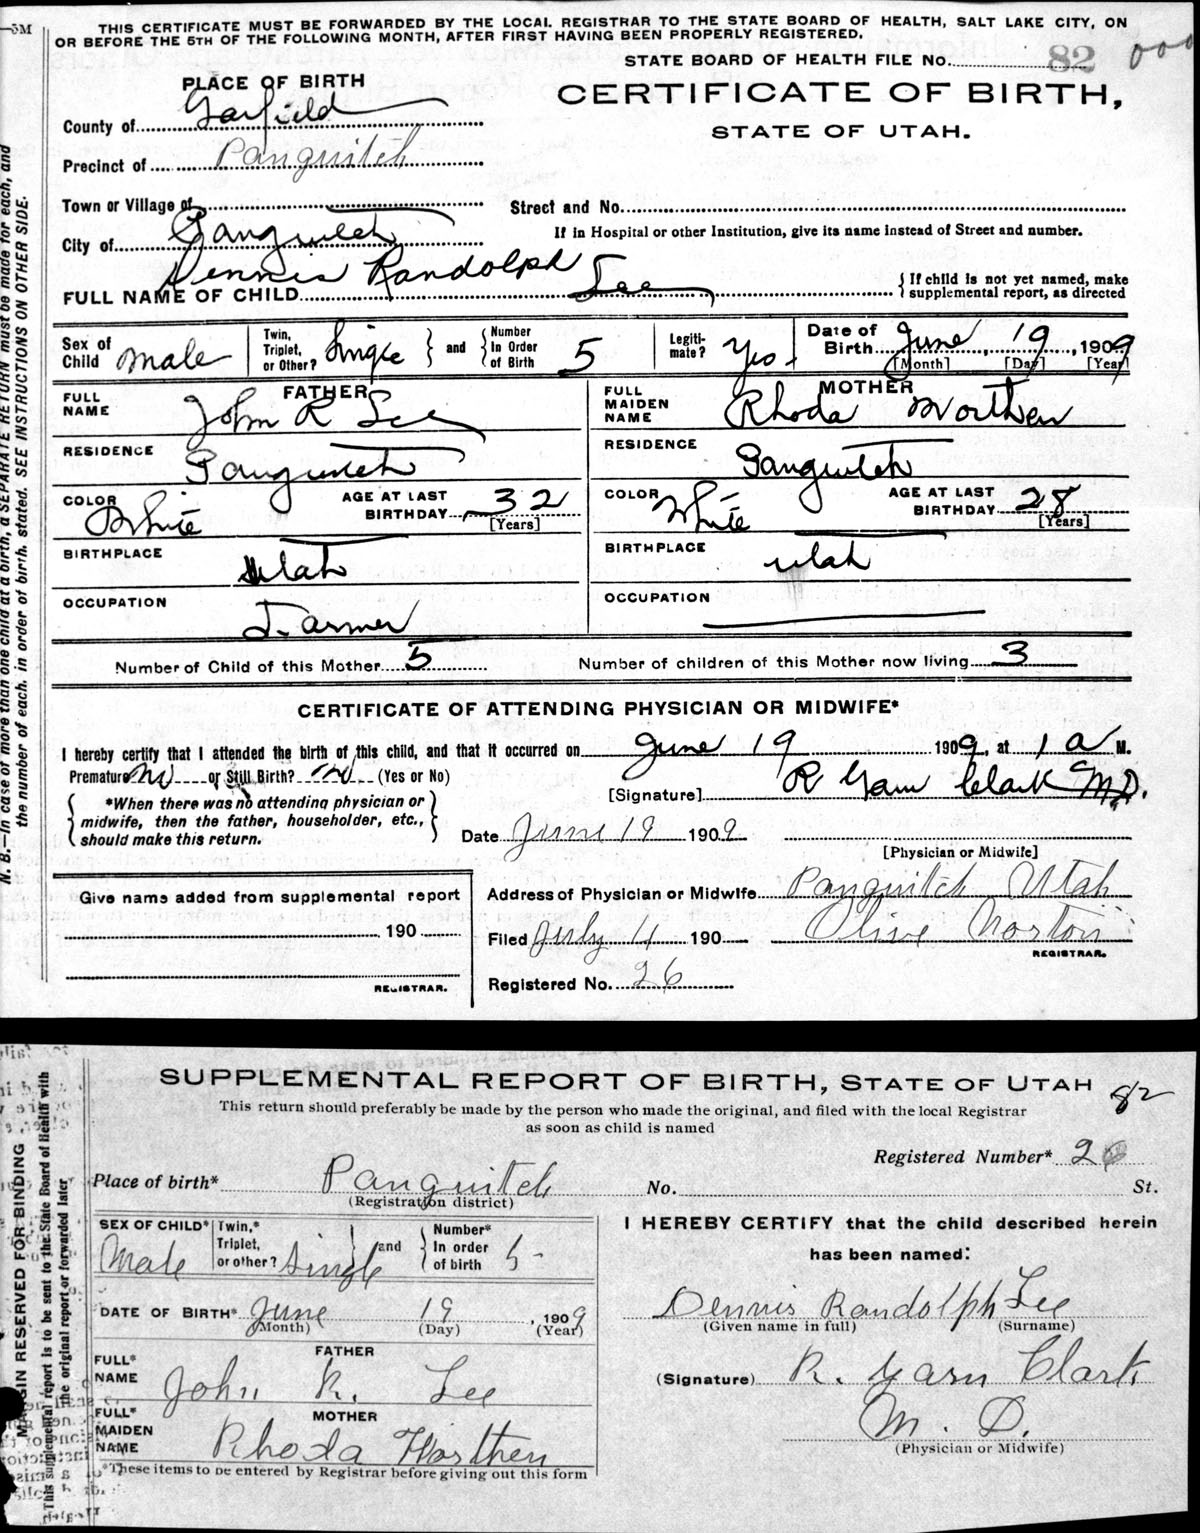 THIS CERTIFICATE MUST BE FORWARDED BY THE LOCAL REGISTRAR TO THE STATE BOARD OF HEALTH, SALT LAKE CITY, ON
OR BEFORE THE 5TH OF THE FOLLOWING MONTH, AFTER FIRST HAVING BEEN PROPERLY REGISTERED.
STATE BOARD OF HEALTH FILE No. 82 000
PLACE OF BIRTH
CERTIFICATE OF BIRTH,
STATE OF UTAH.
County of Garfield
Precinct of Panguitch
Town or Village of
Street and No.
City of Panguitch
If in Hospital or other Institution, give its name instead of Street and number.
FULL NAME OF CHILD Dennis Randolph Lee
{ If child is not yet named, make
supplemental report, as directed
Sex of Child male
Twin, Triplet, or Other? Single } and { Number In Order of Birth 5
Legitimate? Yes
Date of Birth June 19, 1909
[Month] [Day] [Year]
FATHER
FULL NAME John R Lee
MOTHER
FULL MAIDEN NAME Rhoda Worthen
RESIDENCE Panguitch
RESIDENCE Panguitch
COLOR White
AGE AT LAST BIRTHDAY 32 [Years]
COLOR White
AGE AT LAST BIRTHDAY 28 [Years]
BIRTHPLACE Utah
BIRTHPLACE Utah
OCCUPATION Farmer
OCCUPATION
Number of Child of this Mother 5
Number of children of this Mother now living 3
CERTIFICATE OF ATTENDING PHYSICIAN OR MIDWIFE*
I hereby certify that I attended the birth of this child, and that it occurred on June 19 1909, at 1 a M.
Premature no or Still Birth? no (Yes or No)
[Signature] R Garn Clark M.D.
{ *When there was no attending physician or
midwife, then the father, householder, etc.,
should make this return. }
Date June 19 1909
[Physician or Midwife]
Give name added from supplemental report
190
REGISTRAR.
Address of Physician or Midwife Panguitch Utah
Filed July 4 190
Olive Norton
REGISTRAR.
Registered No. 26
N. B.—In case of more than one child at a birth, a SEPARATE RETURN must be made for each, and
the number of each, in order of birth, stated. SEE INSTRUCTIONS ON OTHER SIDE.
SUPPLEMENTAL REPORT OF BIRTH, STATE OF UTAH 82
This return should preferably be made by the person who made the original, and filed with the local Registrar
as soon as child is named
Registered Number* 26
Place of birth* Panguitch
(Registration district)
No. St.
SEX OF CHILD* Male
Twin,* Triplet, or other? Single } and { Number* In order of birth 5
I HEREBY CERTIFY that the child described herein
has been named:
DATE OF BIRTH* June 19, 1909
(Month) (Day) (Year)
Dennis Randolph Lee
(Given name in full) (Surname)
FATHER
FULL* NAME John R. Lee
(Signature) R. Garn Clark
M. D.
(Physician or Midwife)
MOTHER
FULL* MAIDEN NAME Rhoda Worthen
*These items to be entered by Registrar before giving out this form
MARGIN RESERVED FOR BINDING
This supplemental report is to be sent to the State Board of Health with
the original report or forwarded later